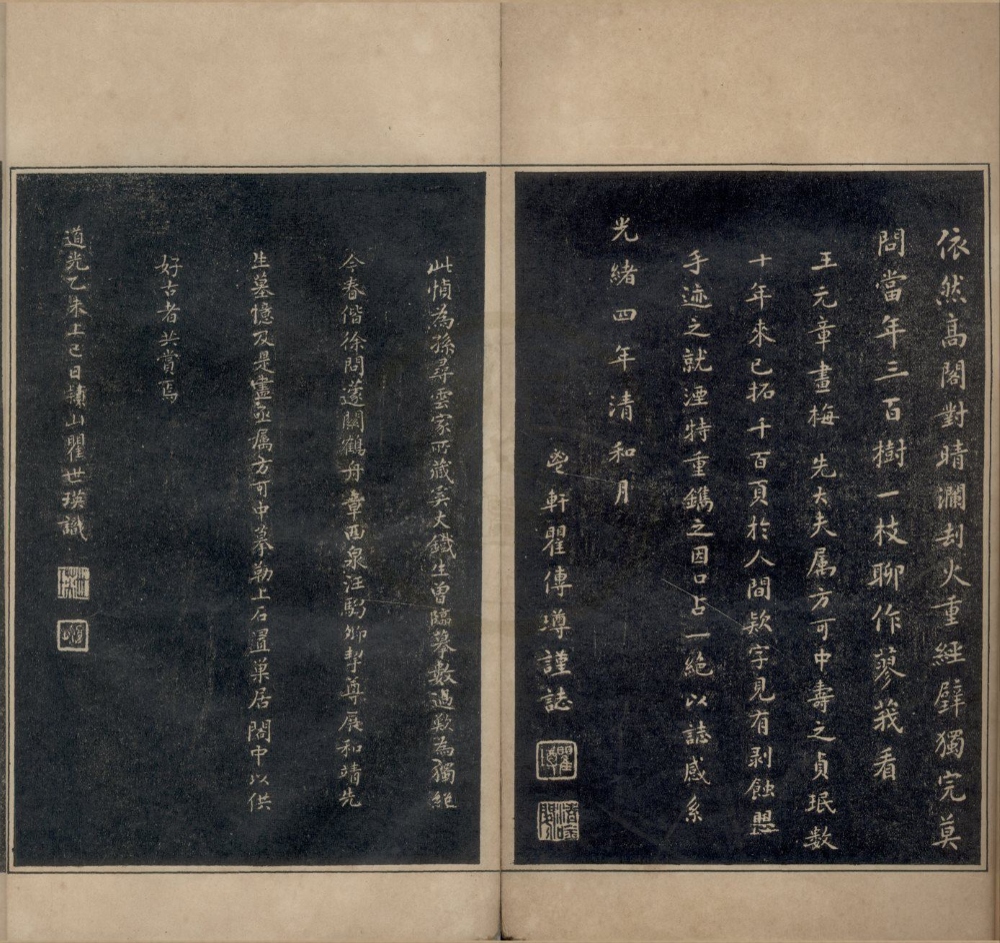 依然高閣對晴瀾刦火重經壁獨完莫
問當年三百樹一枝聊作蓼莪看
王元章畫梅先大夫属方可中壽之貞珉数
十年來已拓千百頁於人間欵字見有剥蝕惧
手迹之就湮特重鐫之因口占一絕以誌感系
光緒四年清和月
軒瞿傳鐏謹誌
此幀為孫尋雲家所藏奚大鐵生曾臨摹數過歎為獨絕
今春偕徐問蘧闞鶴舟章酉泉汪駒卿挈尊展和靖先
生墓憶及是畫亟属方可中摹勒上石置巢居閣中以供
好古者共賞焉
道光乙未上巳日蕭山瞿世瑛識